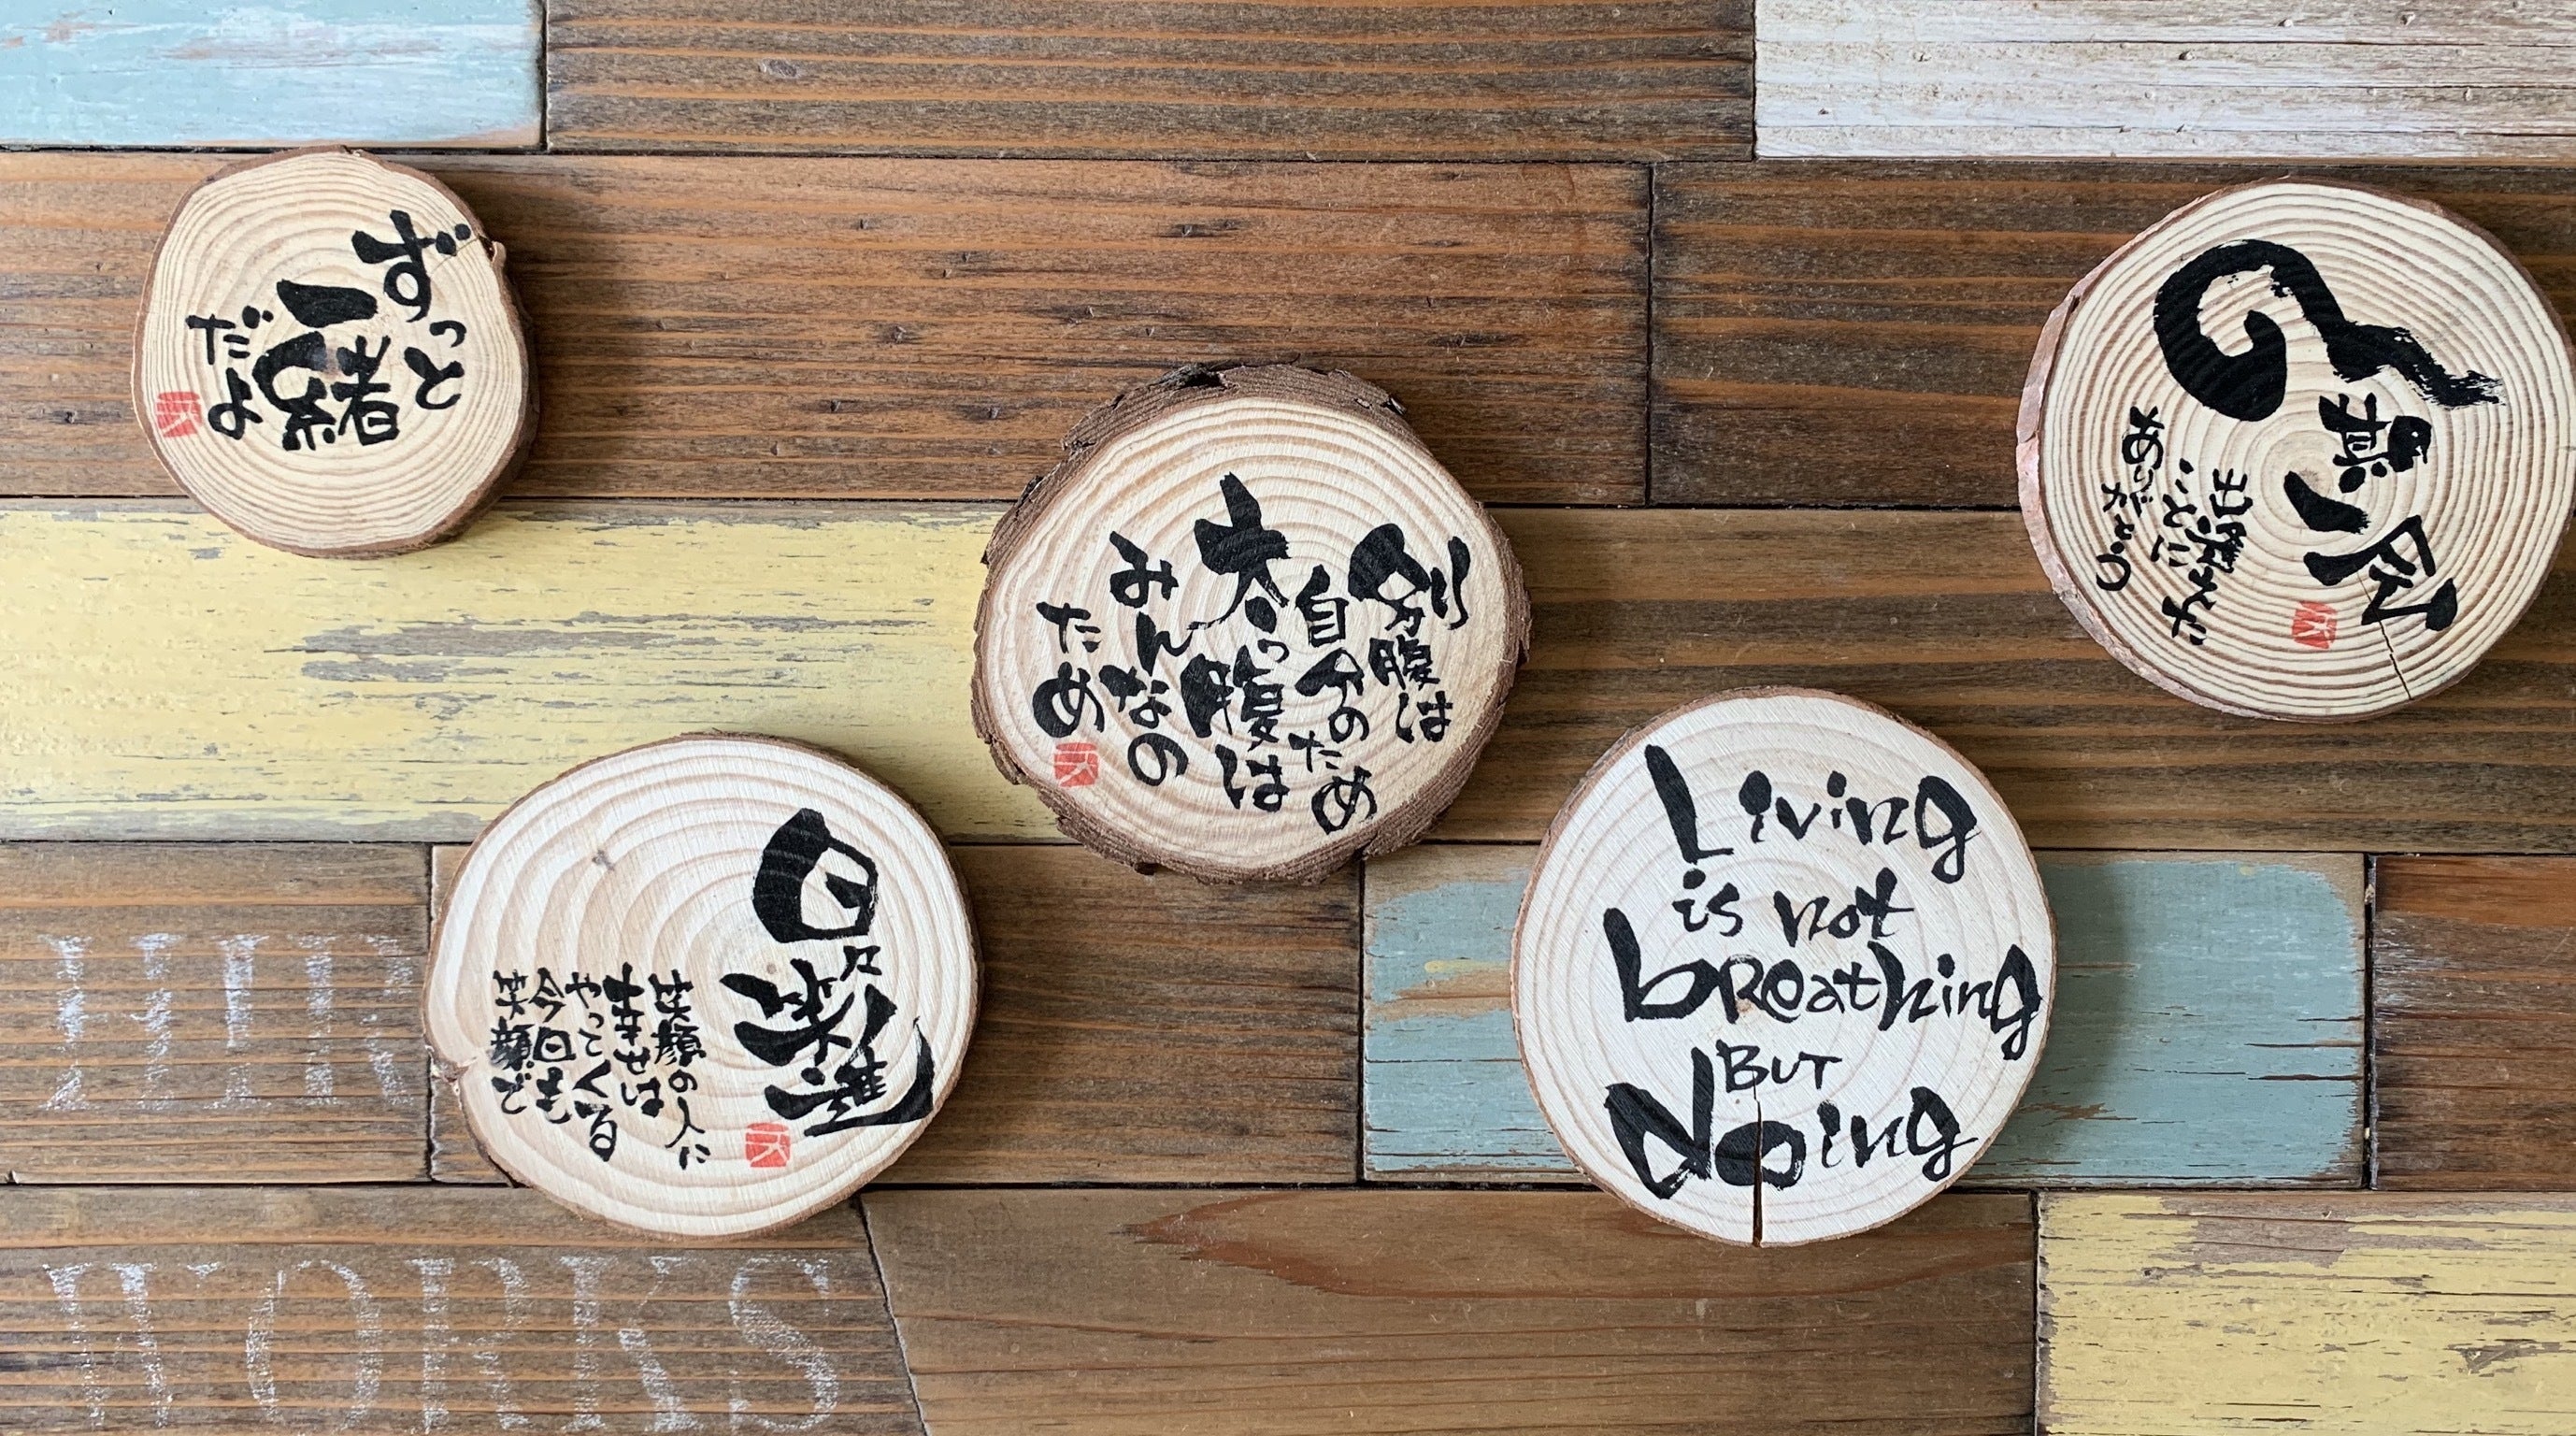 ずっと
一緒
だよ
別腹は
自分のため
太っ腹は
みんなの
ため
出逢えた
ことに
ありがとう
日々
笑進
笑顔の人に
幸せは
やってくる
今日も
笑顔で
Living
is not
breathing
BUT
doing
WORKS